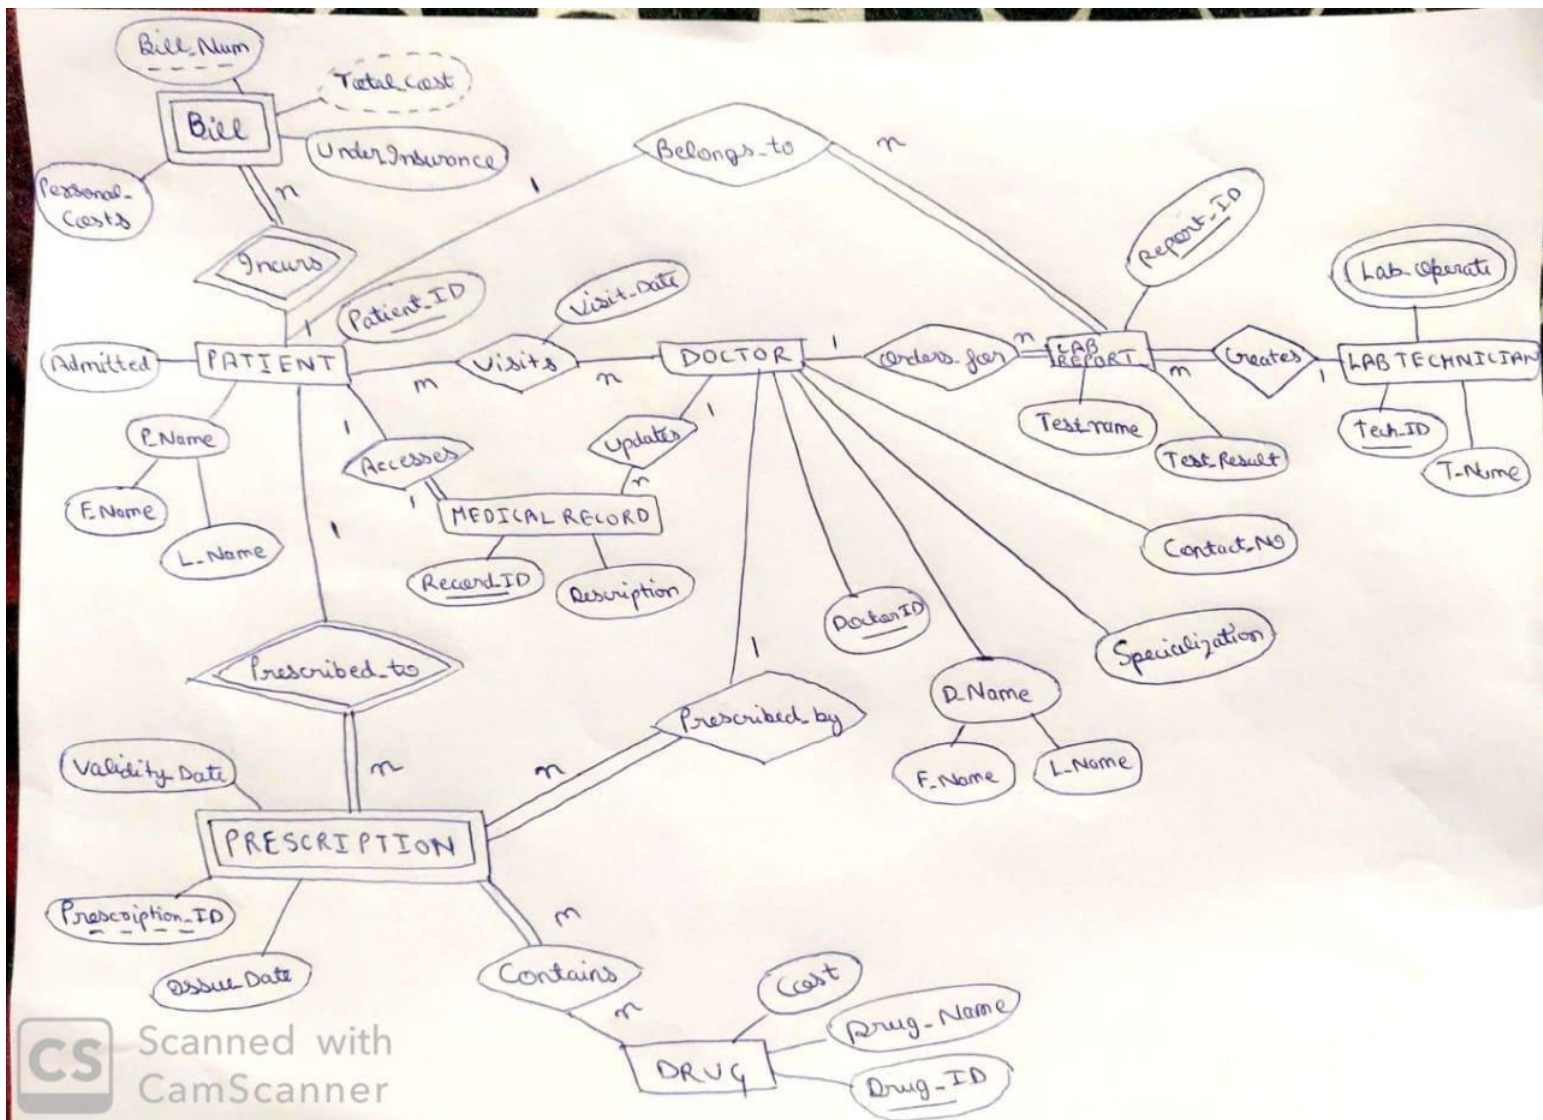 Bill_Num
Total_Cost
Bill
UnderInsurance
Personal_
Costs
n
Incurs
1
Belongs_to
1
n
Report_ID
Lab_Operate
Patient_ID
Visit_Date
Admitted
PATIENT
m
Visits
n
DOCTOR
1
Orders_for
n
LAB
REPORT
m
Creates
1
LAB TECHNICIAN
P_Name
F_Name
L_Name
1
Accesses
1
Updates
1
n
MEDICAL RECORD
Record_ID
Description
Test_name
Test_Result
Tech_ID
T_Name
Contact_No
Specialization
DoctorID
D_Name
F_Name
L_Name
1
Prescribed_to
n
1
Prescribed_by
n
Validity_Date
PRESCRIPTION
Prescription_ID
Issue_Date
m
Contains
n
Cost
Drug_Name
DRUG
Drug_ID
CS
Scanned with
CamScanner